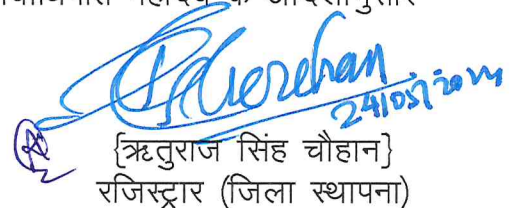 के आदेशानुसार
24/05/2024
{ऋतुराज सिंह चौहान}
रजिस्ट्रार (जिला स्थापना)